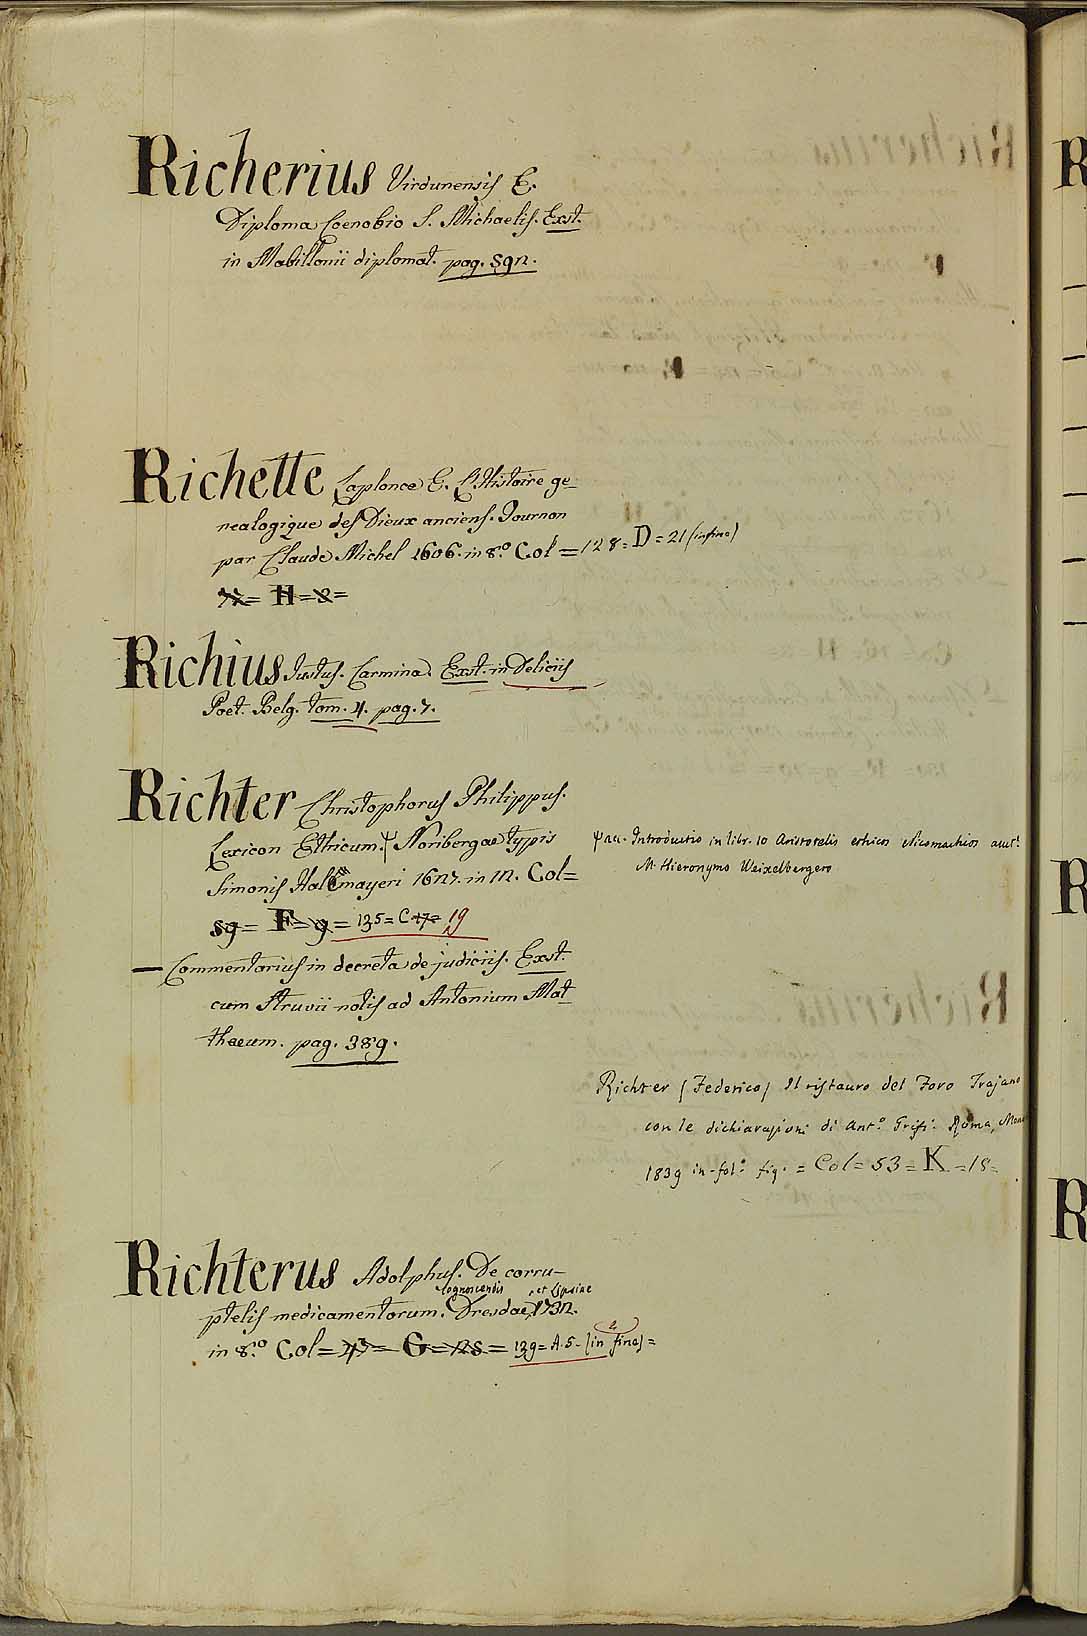 Richerius Virdunensis E.
Diploma Coenobio S. Michaelis. Exst.
in Mabillonii diplomat. pag. 592.
Richette Laplonce E. L'Histoire ge-
nealogique des Dieux anciens. Tournon
par Claude Michel 1606. in 8.º Col = 128 = D = 21 (infine)
= H = 2 =
Richius Justus. Carmina. Exst. in Deliciis
Poet. Belg. tom. 4. pag. 7.
Richter Christophorus Philippus.
Lexicon Ethicum. Ψ Noribergae typis
Simonis Halbmayeri 1627. in 12. Col =
59 = F = 9 = 135 = C 19
Ψ acc. Introductio in libr. 10 Aristotelis ethicos Nicomachios auct.
M. Hieronymo Weixelbergero
— Commentarius in decreta de judiciis. Exst.
cum Struvii notis ad Antonium Mat
thaeum. pag. 389.
Richter (Federico) Il ristauro del Foro Trajano
con le dichiarazioni di Ant.º Grifi. Roma,
1839 in-fol.º fig. = Col = 53 = K = 18 =
Richterus Adolphus. De corru-
ptelis medicamentorum cognoscendis. Dresdae, et Lipsiae 1732.
in 8.º Col = 47 = G = 25 = 139 = A. 5 - (in fine) =